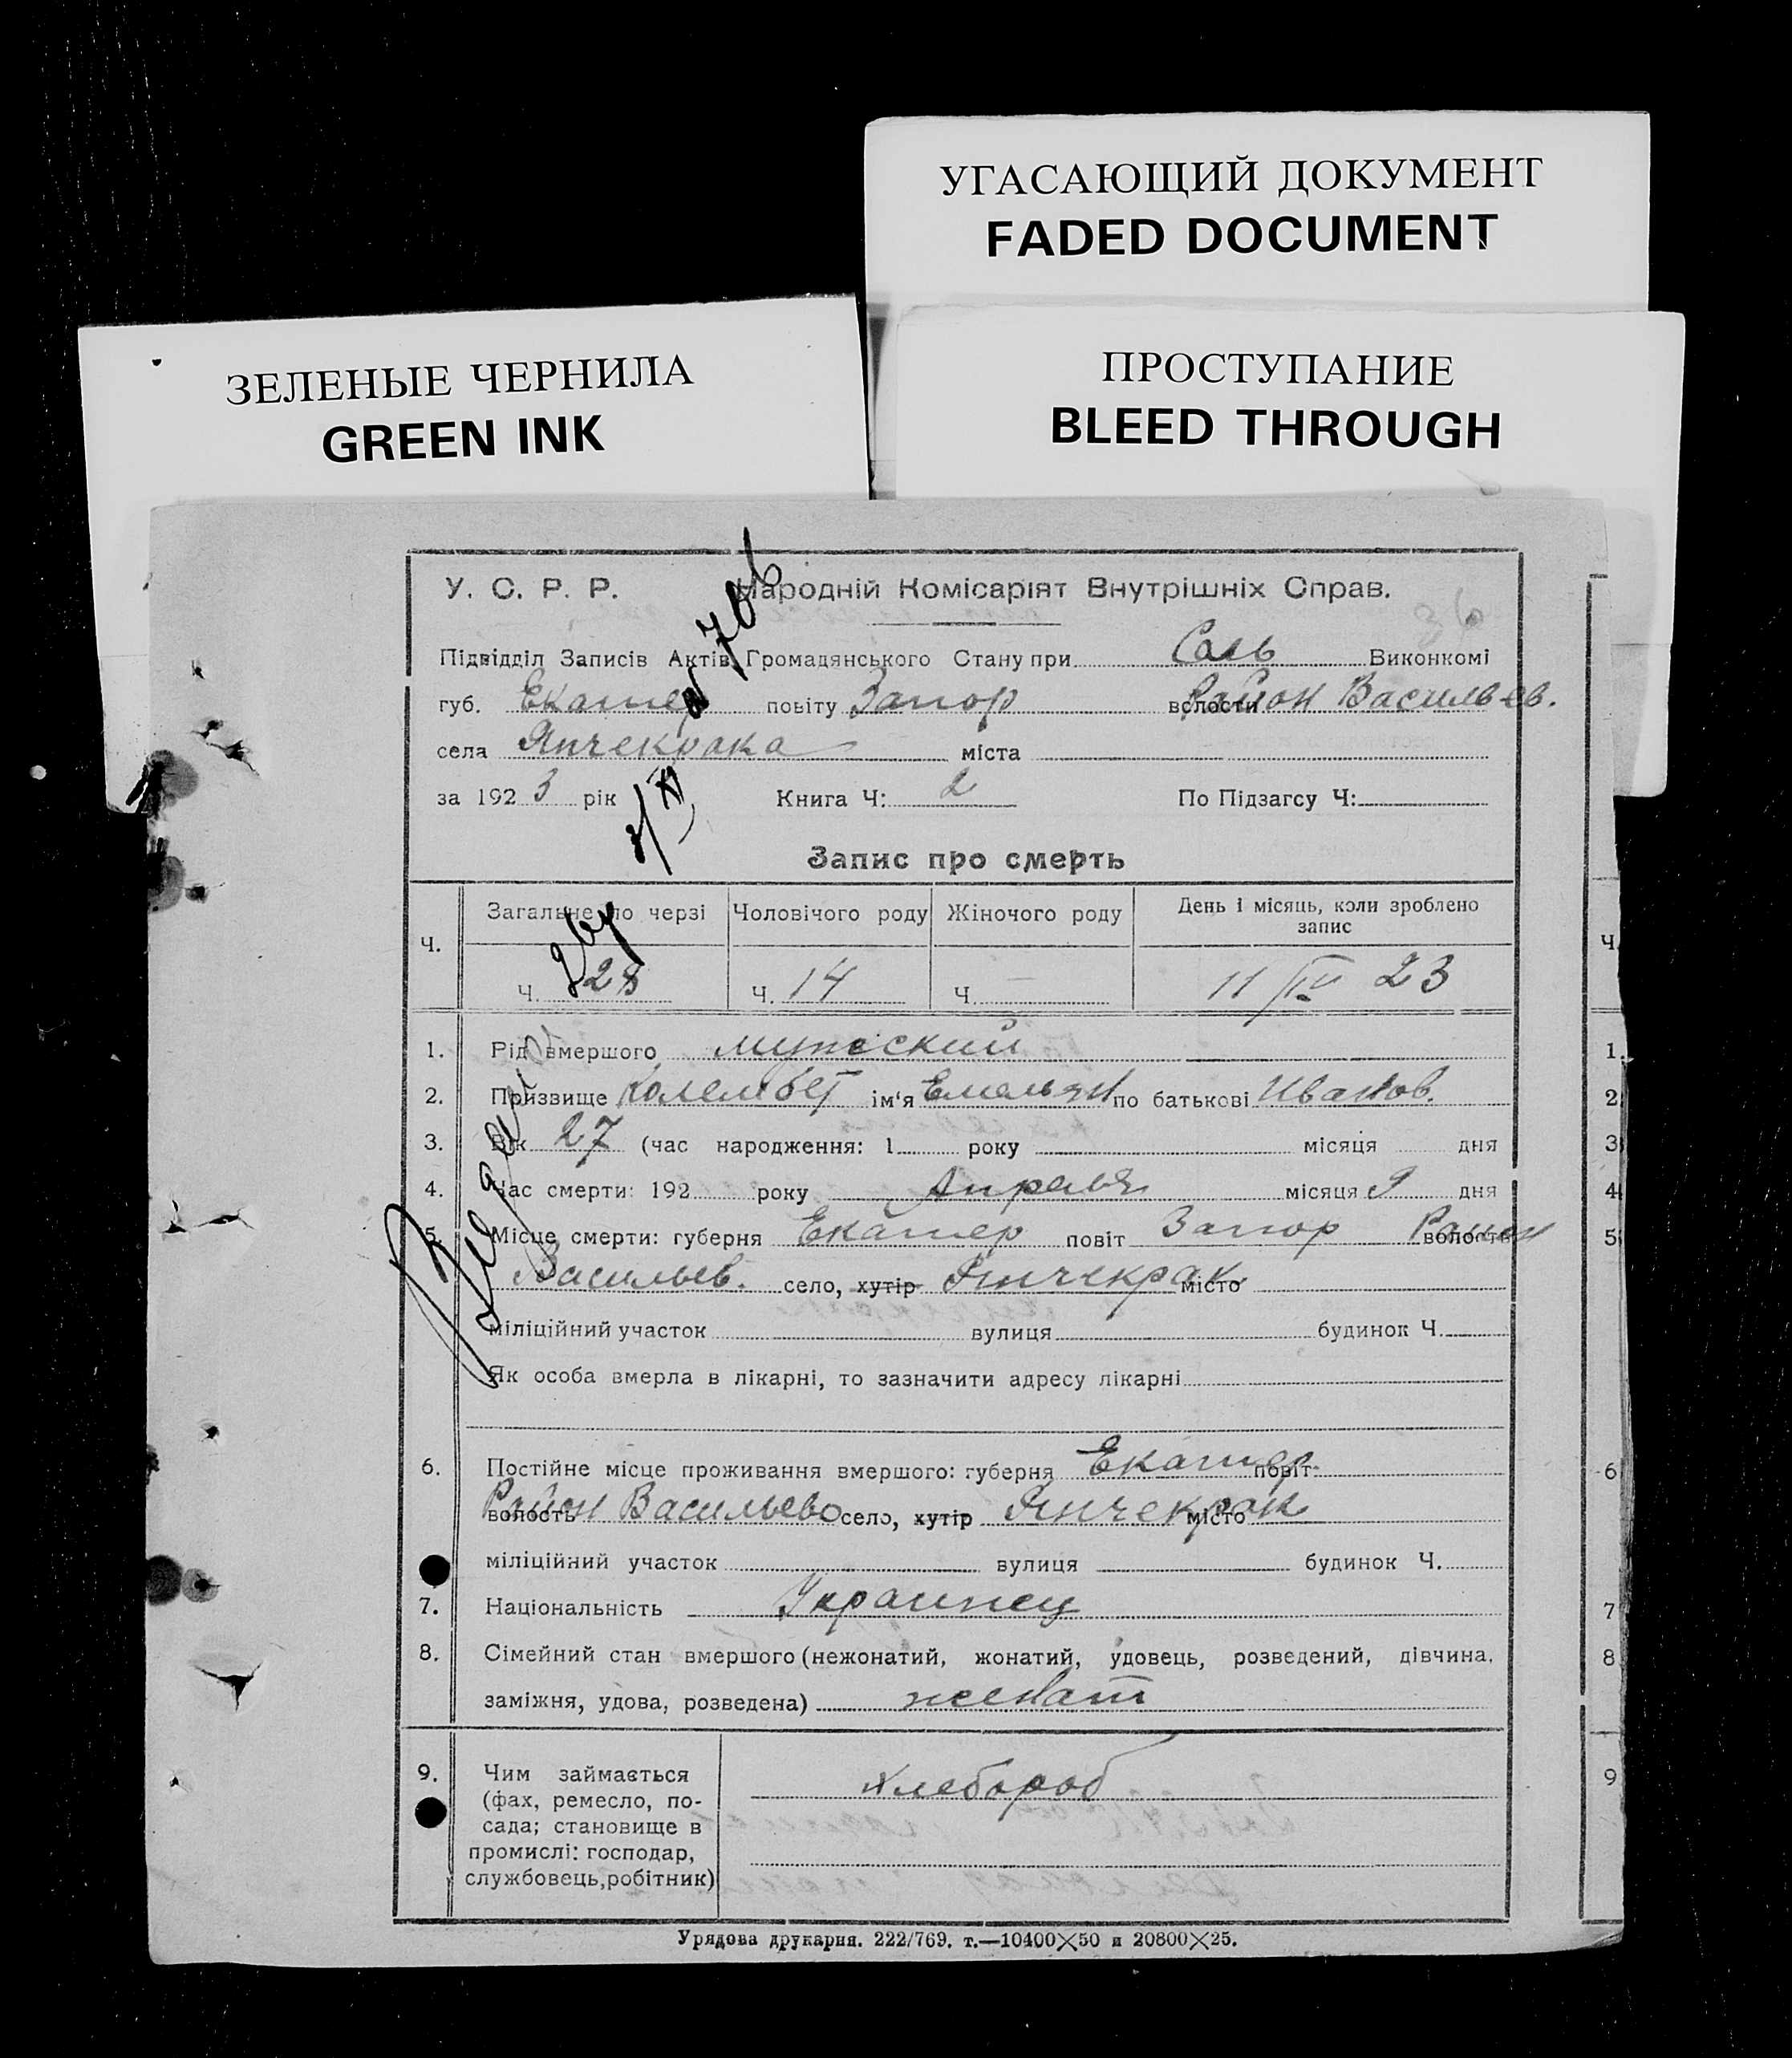 УГАСАЮЩИЙ ДОКУМЕНТ
FADED DOCUMENT
ЗЕЛЕНЫЕ ЧЕРНИЛА
GREEN INK
ПРОСТУПАНИЕ
BLEED THROUGH
У. С. Р. Р. Народній Комісаріят Внутрішніх Справ.
Підвідділ Записів Актів Громадянського Стану при Виконкомі
губ. Екатер повіту Запор волости Район Васильев.
села Янчекрака міста
за 1923 рік Книга Ч: 2 По Підзагсу Ч:
Запис про смерть
Ч. Загальне по черзі Чоловічого роду Жіночого роду День і місяць, коли зроблено
запис
Ч. 28 Ч. 14 Ч. — 11/IV 23
1. Рід вмершого мужеский
2. Призвище Колембет ім'я Емельян по батькові Иванов.
3. Вік 27 (час народження: 1 року місяця дня
4. Час смерти: 192 року Апреля місяця 9 дня
5. Місце смерти: губерня Екатер повіт Запор волость Район
Васильев. село, хутір Янчекрак місто
міліційний участок вулиця будинок Ч.
Як особа вмерла в лікарні, то зазначити адресу лікарні
6. Постійне місце проживання вмершого: губерня Екатер. повіт
волость Район Васильево село, хутір Янчекрак місто
міліційний участок вулиця будинок Ч.
7. Національність Украинец
8. Сімейний стан вмершого (нежонатий, жонатий, удовець, розведений, дівчина,
заміжня, удова, розведена) женат
9. Чим займається хлебороб
(фах, ремесло, по-
сада; становище в
промислі: господар,
службовець, робітник)
Урядова друкарня. 222/769. т.—10400×50 и 20800×25.
Ч
1.
2
3
4
5
6
7
8
9